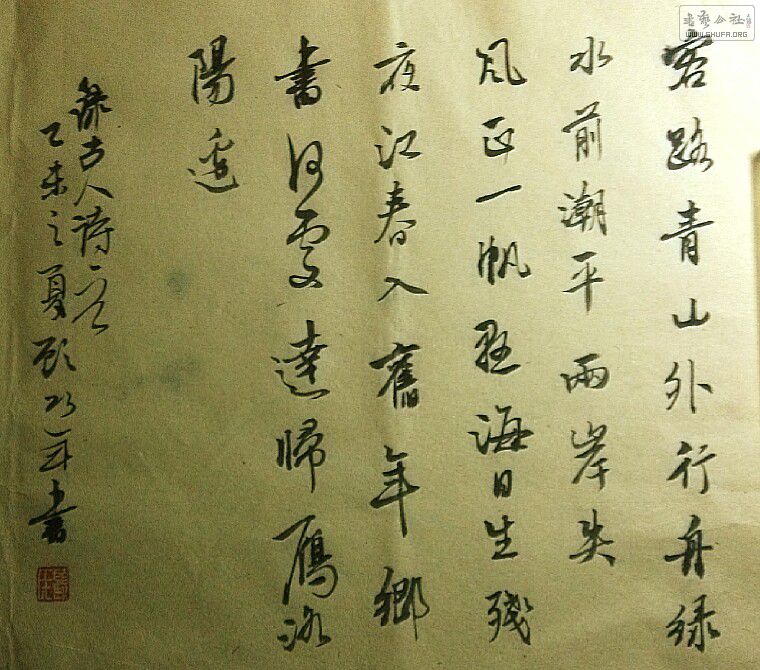 書藝公社
WWW.SHUFA.ORG
客路青山外行舟绿
水前潮平兩岸失
风正一帆悬海日生殘
夜江春入舊年鄉
書何處達歸鴈洛
陽邊
錄古人詩一首
乙未之夏年書